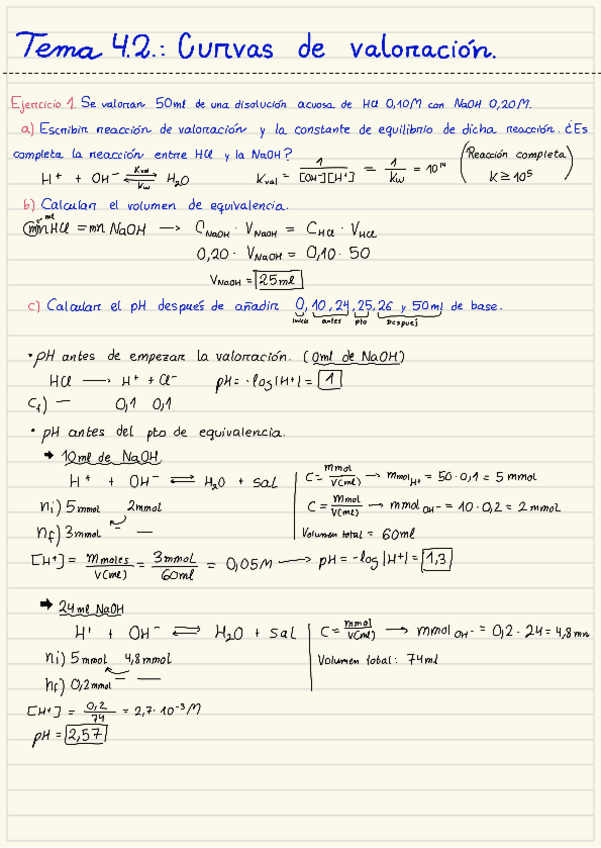 Tema 4.2.: Curvas de valoración.
Ejercicio 1. Se valoran 50ml de una disolución acuosa de HCl 0,10M con NaOH 0,20M.
a) Escribir reacción de valoración y la constante de equilibrio de dicha reacción. ¿Es
completa la reacción entre HCl y la NaOH?
H⁺ + OH⁻ ⇌ H₂O Kval Kw Kval = 1/[OH⁻][H⁺] = 1/Kw = 10¹⁴ (Reacción completa K ≥ 10⁵)
b) Calcular el volumen de equivalencia.
mn HCl = mn NaOH → C_NaOH · V_NaOH = C_HCl · V_HCl
0,20 · V_NaOH = 0,10 · 50
V_NaOH = 25ml
c) Calcular el pH después de añadir 0, 10, 24, 25, 26 y 50ml de base.
inicio antes pto Después
· pH antes de empezar la valoración. (0ml de NaOH)
HCl → H⁺ + Cl⁻ pH = -log|H⁺| = 1
Cf) — 0,1 0,1
· pH antes del pto de equivalencia.
→ 10ml de NaOH
H⁺ + OH⁻ ⇌ H₂O + sal C = mmol/V(ml) → mmol H⁺ = 50·0,1 = 5 mmol
ni) 5mmol 2mmol C = mmol/V(ml) → mmol OH⁻ = 10·0,2 = 2 mmol
nf) 3mmol — — Volumen total = 60ml
[H⁺] = mmoles/V(ml) = 3mmol/60ml = 0,05M → pH = -log|H⁺| = 1,3
→ 24ml NaOH
H⁺ + OH⁻ ⇌ H₂O + sal C = mmol/V(ml) → mmol OH⁻ = 0,2 · 24 = 4,8 mm
ni) 5mmol 4,8mmol Volumen total: 74ml
nf) 0,2mmol — —
[H⁺] = 0,2/74 = 2,7·10⁻³M
pH = 2,57